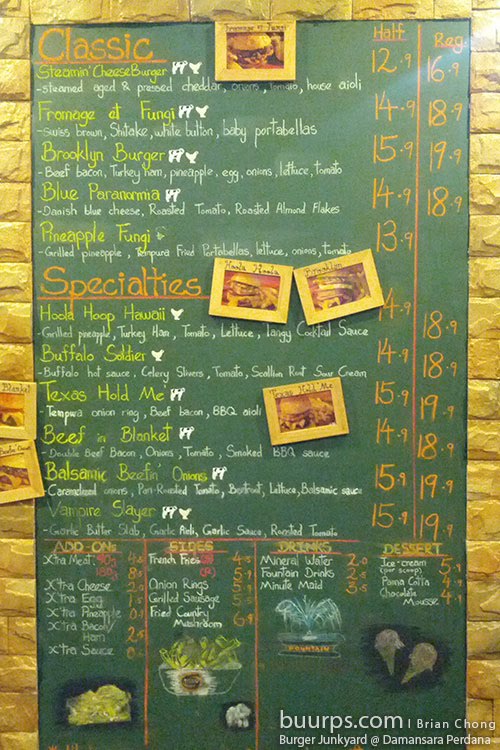 Fromage at Fungi
Classic Half Reg.
Steamin' CheeseBurger 12.9 16.9
-steamed aged & pressed cheddar, onions, tomato, house aioli
Fromage at Fungi 14.9 18.9
-Swiss brown, Shitake, white button, baby portabellas
Brooklyn Burger 15.9 19.9
-Beef bacon, Turkey ham, pineapple, egg, onions, lettuce, tomato
Blue Paranormia 14.9 18.9
-Danish blue cheese, Roasted Tomato, Roasted Almond Flakes
Pineapple Fungi 13.9
-Grilled pineapple, Tempura Fried Portabellas, lettuce, onions, tomato
Hoola Hoola
Specialties
Hoola Hoop Hawaii 14.9 18.9
-Grilled pineapple, Turkey Ham, Tomato, Lettuce, Tangy Cocktail Sauce
Buffalo Soldier 14.9 18.9
-Buffalo hot sauce, Celery Slivers, Tomato, Scallion Root Sour Cream
Texas Hold Me 15.9 19.9
-Tempura onion ring, Beef bacon, BBQ aioli
Texas Hold Me
Blanket
Beef in Blanket 14.9 18.9
-Double Beef Bacon, Onions, Tomato, Smoked BBQ sauce
Balsamic Beefin' Onions 15.9 19.9
-Caramelized onions, Pan-Roasted Tomato, Beetroot, Lettuce, Balsamic sauce
Vampire Slayer 15.9 19.9
-Garlic Butter Slab, Garlic Aioli, Garlic Sauce, Roasted Tomato
ADD-ONs
X'tra Meat
X'tra Cheese
X'tra Egg
X'tra Pineapple
X'tra Bacon/
Ham
X'tra Sauce
SIDES
French Fries
Onion Rings
Grilled Sausage
Fried Country
Mushroom
DRINKS
Mineral Water
Fountain Drinks
Minute Maid
FOUNTAIN
DESSERT
Ice-cream 5.9
(per scoop)
Panna Cotta 4.9
Chocolate
Mousse 4.9
buurps.com | Brian Chong
Burger Junkyard @ Damansara Perdana